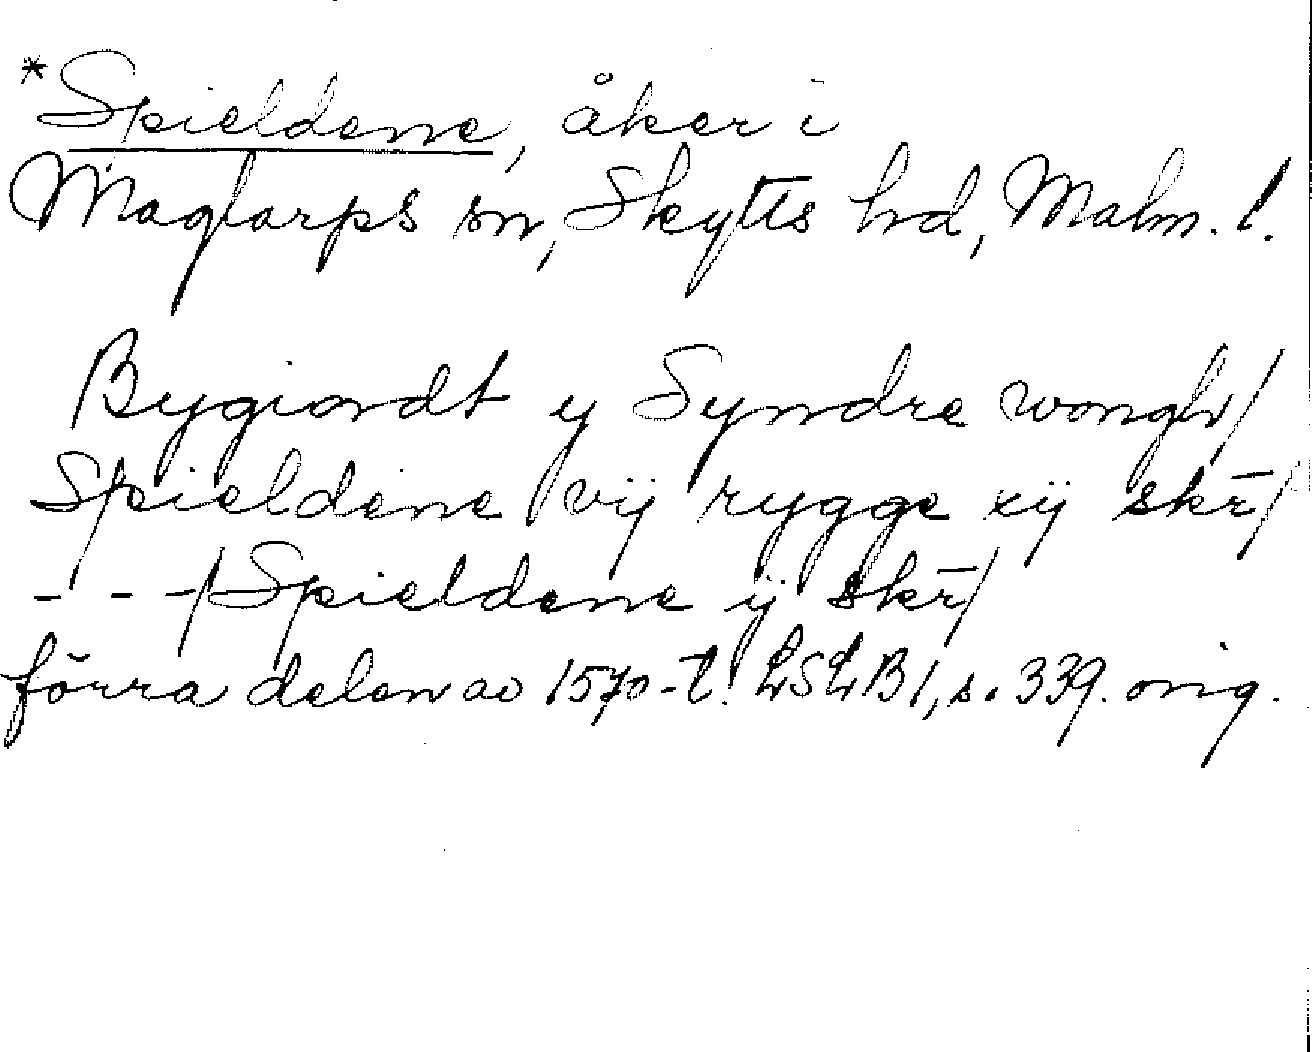 *Spieldene, åker i
Maglarps sn, Skytts hd, Malm. l.
Bygiordt y Syndre wongh/
Spieldene vij rygge xij skr̄/
- - -/Spieldene ij skr̄/
förra delen av 1570-t. LSLB1, s. 339. orig.